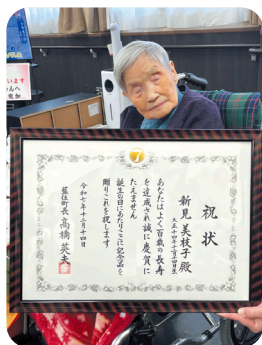 祝状
新見美枝子殿
大正十四年十二月十四日生
あなたはよく百歳の長寿
を達成され誠に慶賀に
たえません
誕生の日にあたりここに記念品を
贈りこれを祝します
令和七年十二月十四日
藍住町長 高橋英夫
います
んへ